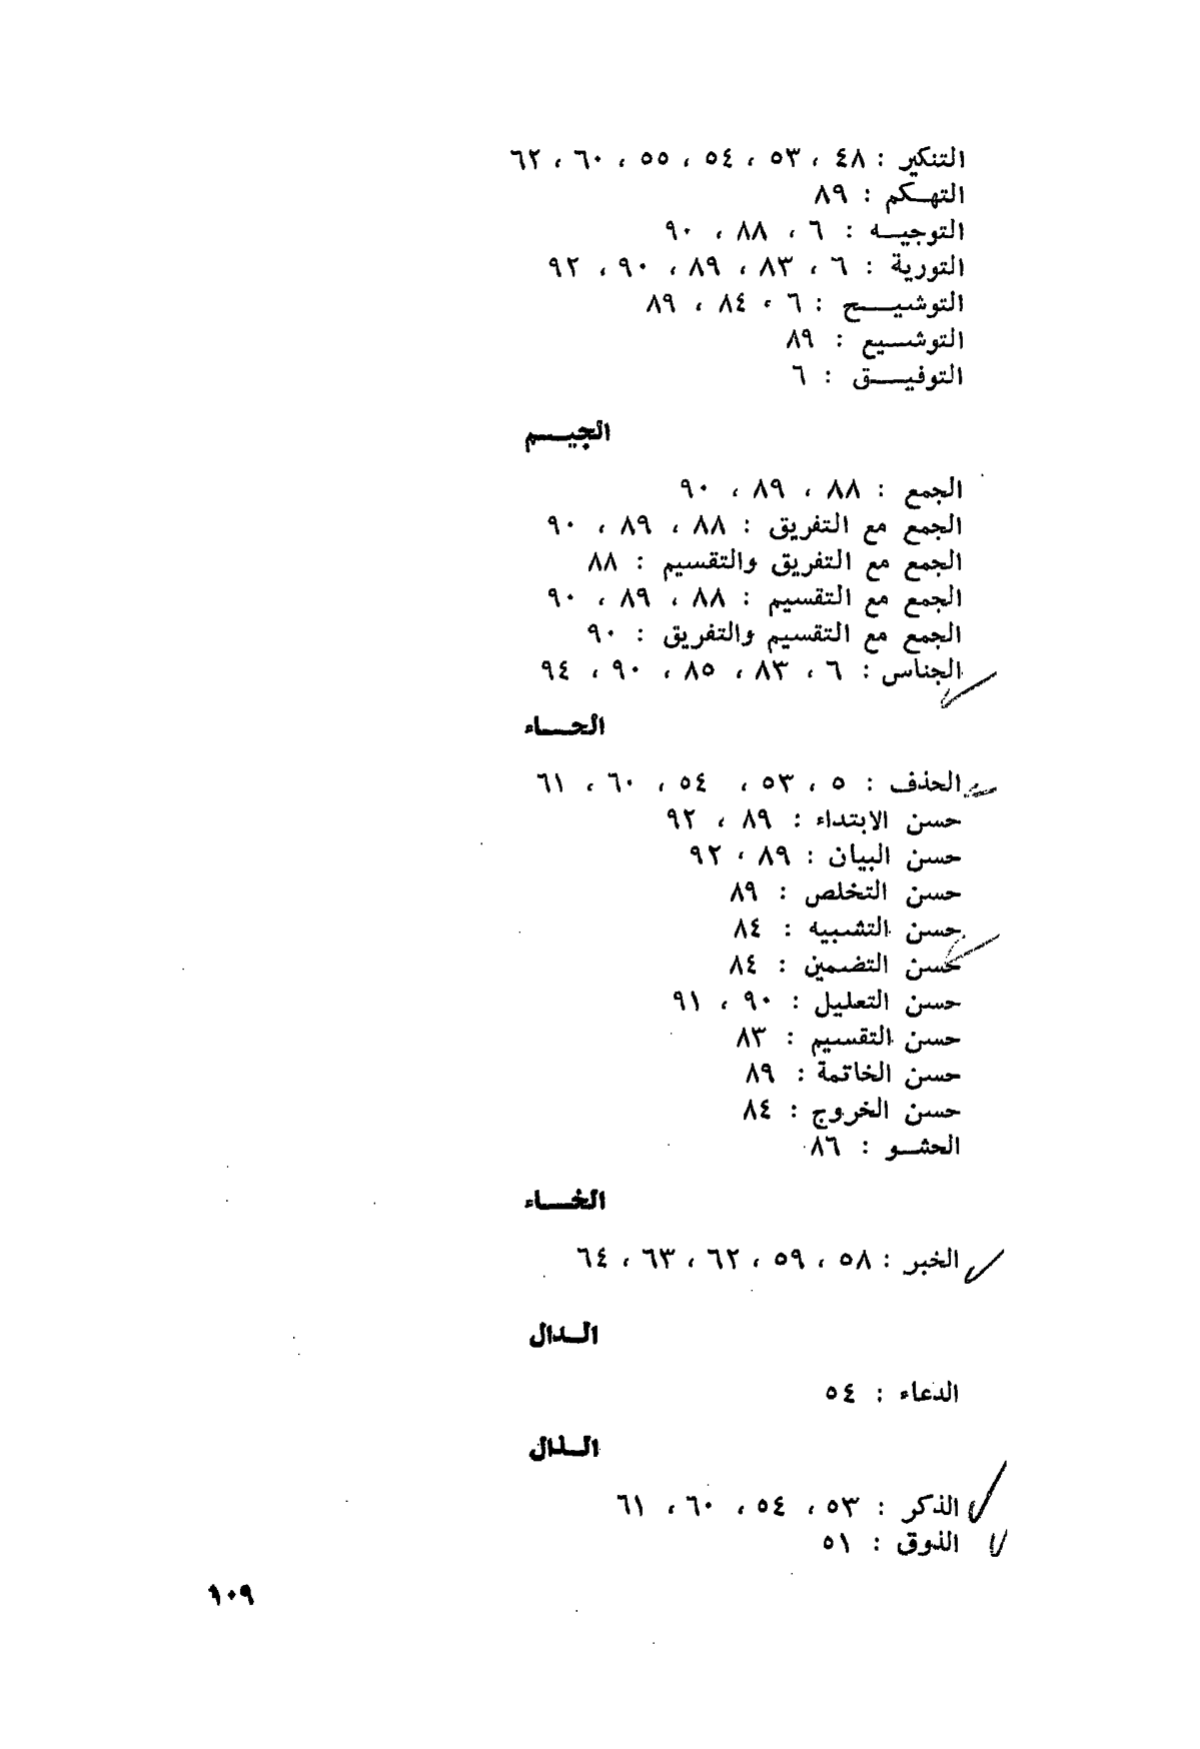 التنكير : ٤٨ ، ٥٣ ، ٥٤ ، ٥٥ ، ٦٠ ، ٦٢
التهـكم : ٨٩
التوجيـه : ٦ ، ٨٨ ، ٩٠
التورية : ٦ ، ٨٣ ، ٨٩ ، ٩٠ ، ٩٢
التوشيـــح : ٦ ، ٨٤ ، ٨٩
التوشـيع : ٨٩
التوفيــق : ٦
الجيــم
الجمع : ٨٨ ، ٨٩ ، ٩٠
الجمع مع التفريق : ٨٨ ، ٨٩ ، ٩٠
الجمع مع التفريق والتقسيم : ٨٨
الجمع مع التقسيم : ٨٨ ، ٨٩ ، ٩٠
الجمع مع التقسيم والتفريق : ٩٠
الجناس : ٦ ، ٨٣ ، ٨٥ ، ٩٠ ، ٩٤
الحــاء
الحذف : ٥ ، ٥٣ ، ٥٤ ، ٦٠ ، ٦١
حسن الابتداء : ٨٩ ، ٩٢
حسن البيان : ٨٩ ، ٩٢
حسن التخلص : ٨٩
حسن التشبيه : ٨٤
حسن التضمين : ٨٤
حسن التعليل : ٩٠ ، ٩١
حسن التقسيم : ٨٣
حسن الخاتمة : ٨٩
حسن الخروج : ٨٤
الحشـو : ٨٦
الخــاء
الخبر : ٥٨ ، ٥٩ ، ٦٢ ، ٦٣ ، ٦٤
الـدال
الدعاء : ٥٤
الـذال
الذكر : ٥٣ ، ٥٤ ، ٦٠ ، ٦١
الذوق : ٥١
١٠٩